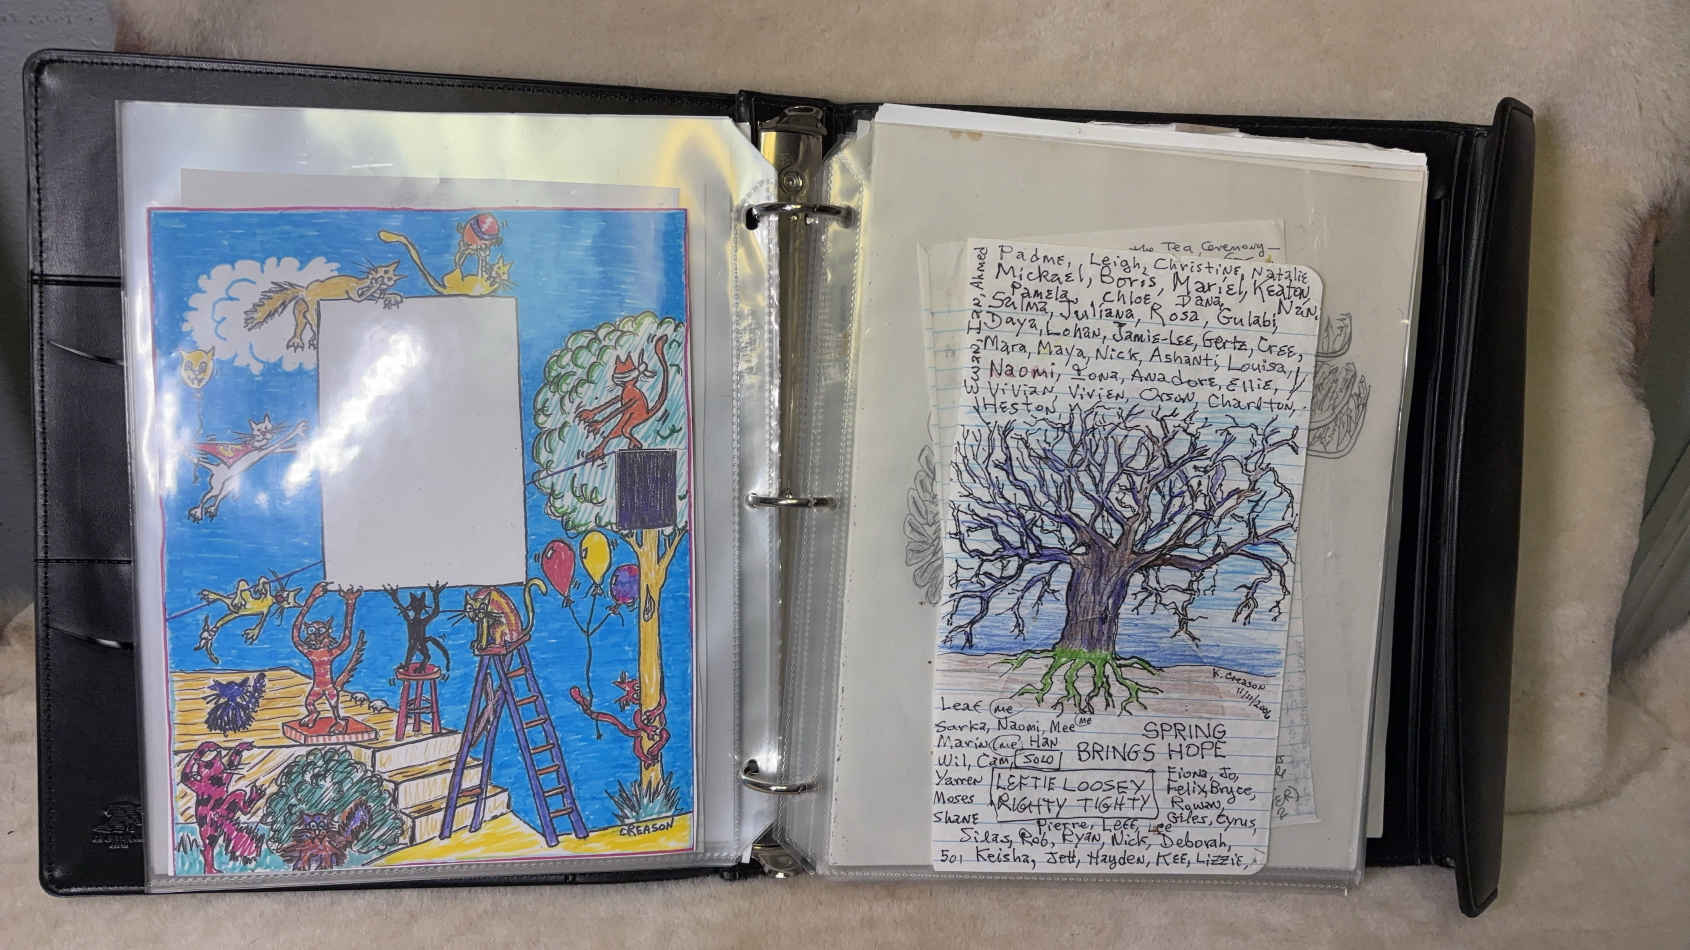 CREASON
the Tea Ceremony —
Padme, Leigh, Christine, Natalie
Mickael, Boris, Mariel, Keaton,
Pamela, Chloe, Dana, Nan,
Salma, Juliana, Rosa, Gulabi,
Daya, Lohan, Jamie-Lee, Gertz, Cree,
Mara, Maya, Nick, Ashanti, Louisa,
Naomi, Iona, Anadore, Ellie,
Vivian, Vivien, Orson, Charlton,
Heston
Ewan, Iza, Ahmed
K. CREASON
11/11/2006
Leaf (me
Sarka, Naomi, Mee (me
Marin (me, Han
Wil, Cam, SOLO
Yarren
Moses
Shane
SPRING
BRINGS HOPE
LEFTIE LOOSEY
RIGHTY TIGHTY
Fiona, Jo,
Felix, Bryce,
Rowan,
Giles, Cyrus,
Pierre, Leee, Lee
Silas, Rob, Ryan, Nick, Deborah,
501 Keisha, Jett, Hayden, Kee, Lizzie,